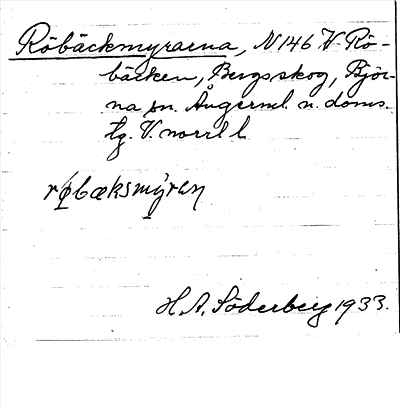 Röbäckmyrarna, N146 V. Rö-
bäcken, Bergsskog, Björ-
na sn. Ångerml. n. doms.
tg. V. norrl l.
røbæksmyren
H. A. Söderberg 1933.